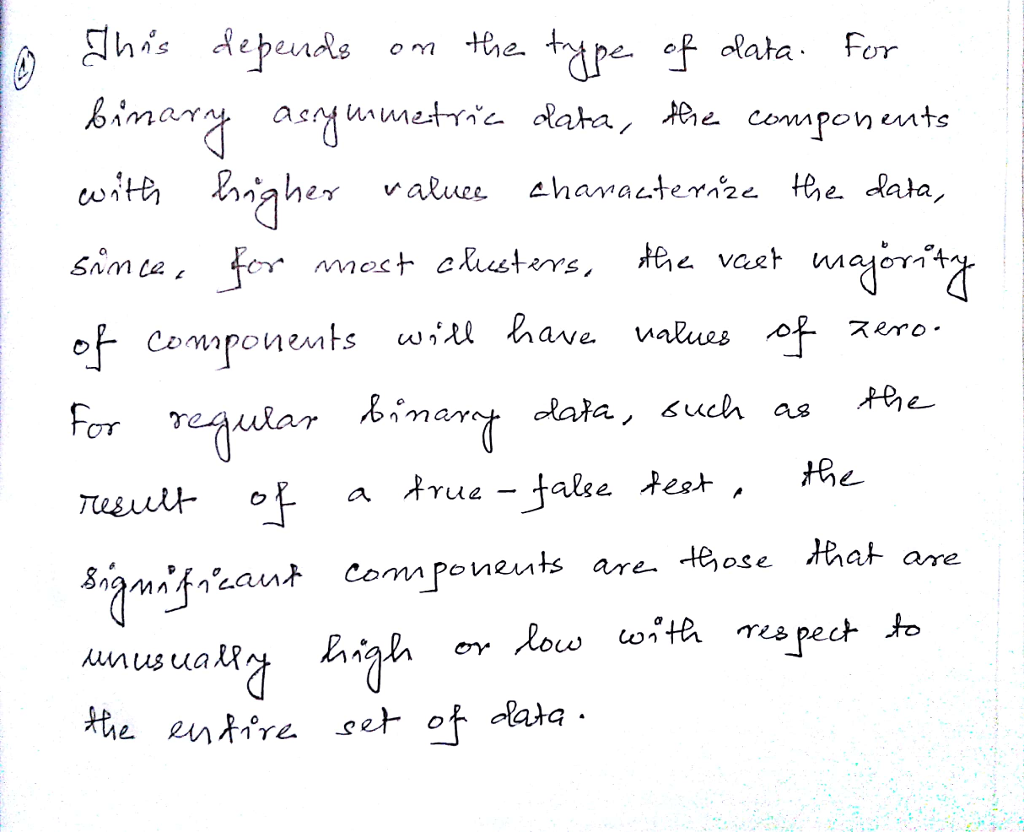 ① This depends on the type of data. For
binary asymmetric data, the components
with higher values characterize the data,
since, for most clusters, the vast majority
of components will have values of zero.
For regular binary data, such as the
result of a true-false test, the
significant components are those that are
unusually high or low with respect to
the entire set of data.